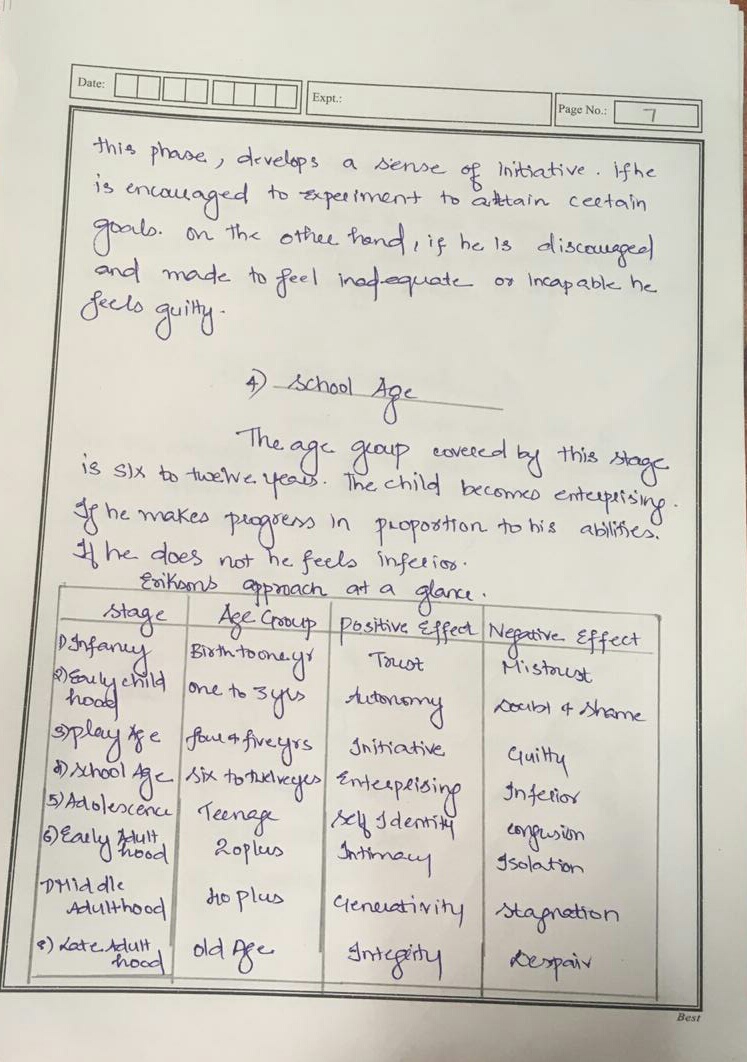 Date:
Expt.:
Page No.: 7
this phase, develops a sense of initiative. if he
is encouraged to experiment to attain certain
goals. on the other hand, if he is discouraged
and made to feel inadequate or incapable he
feels guilty.
4) School Age
The age group covered by this stage
is six to twelve years. The child becomes enterprising.
If he makes progress in proportion to his abilities.
If he does not he feels inferior.
Erikson's approach at a glance.
Stage Age Group Positive Effect Negative Effect
1) Infancy Birth to one yr Trust Mistrust
2) Early child hood one to 3 yrs Autonomy Doubt & Shame
3) play Age four & five yrs Initiative Guilty
4) School Age six to twelve yrs Enterprising Inferior
5) Adolescence Teenage Self Identity confusion
6) Early Adult hood 20 plus Intimacy Isolation
7) Middle Adulthood 40 plus Generativity Stagnation
8) Late Adult hood old Age Integrity Despair
Best